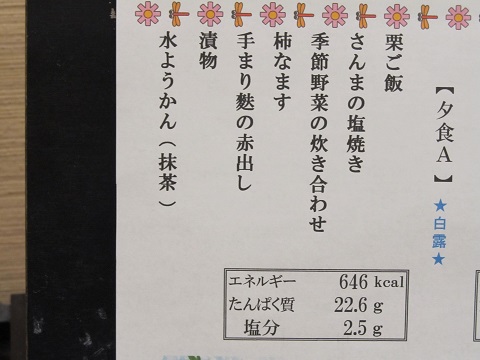 【夕食A】★白露★
栗ご飯
さんまの塩焼き
季節野菜の炊き合わせ
柿なます
手まり麩の赤出し
漬物
水ようかん(抹茶)
エネルギー 646 kcal
たんぱく質 22.6 g
塩分 2.5 g